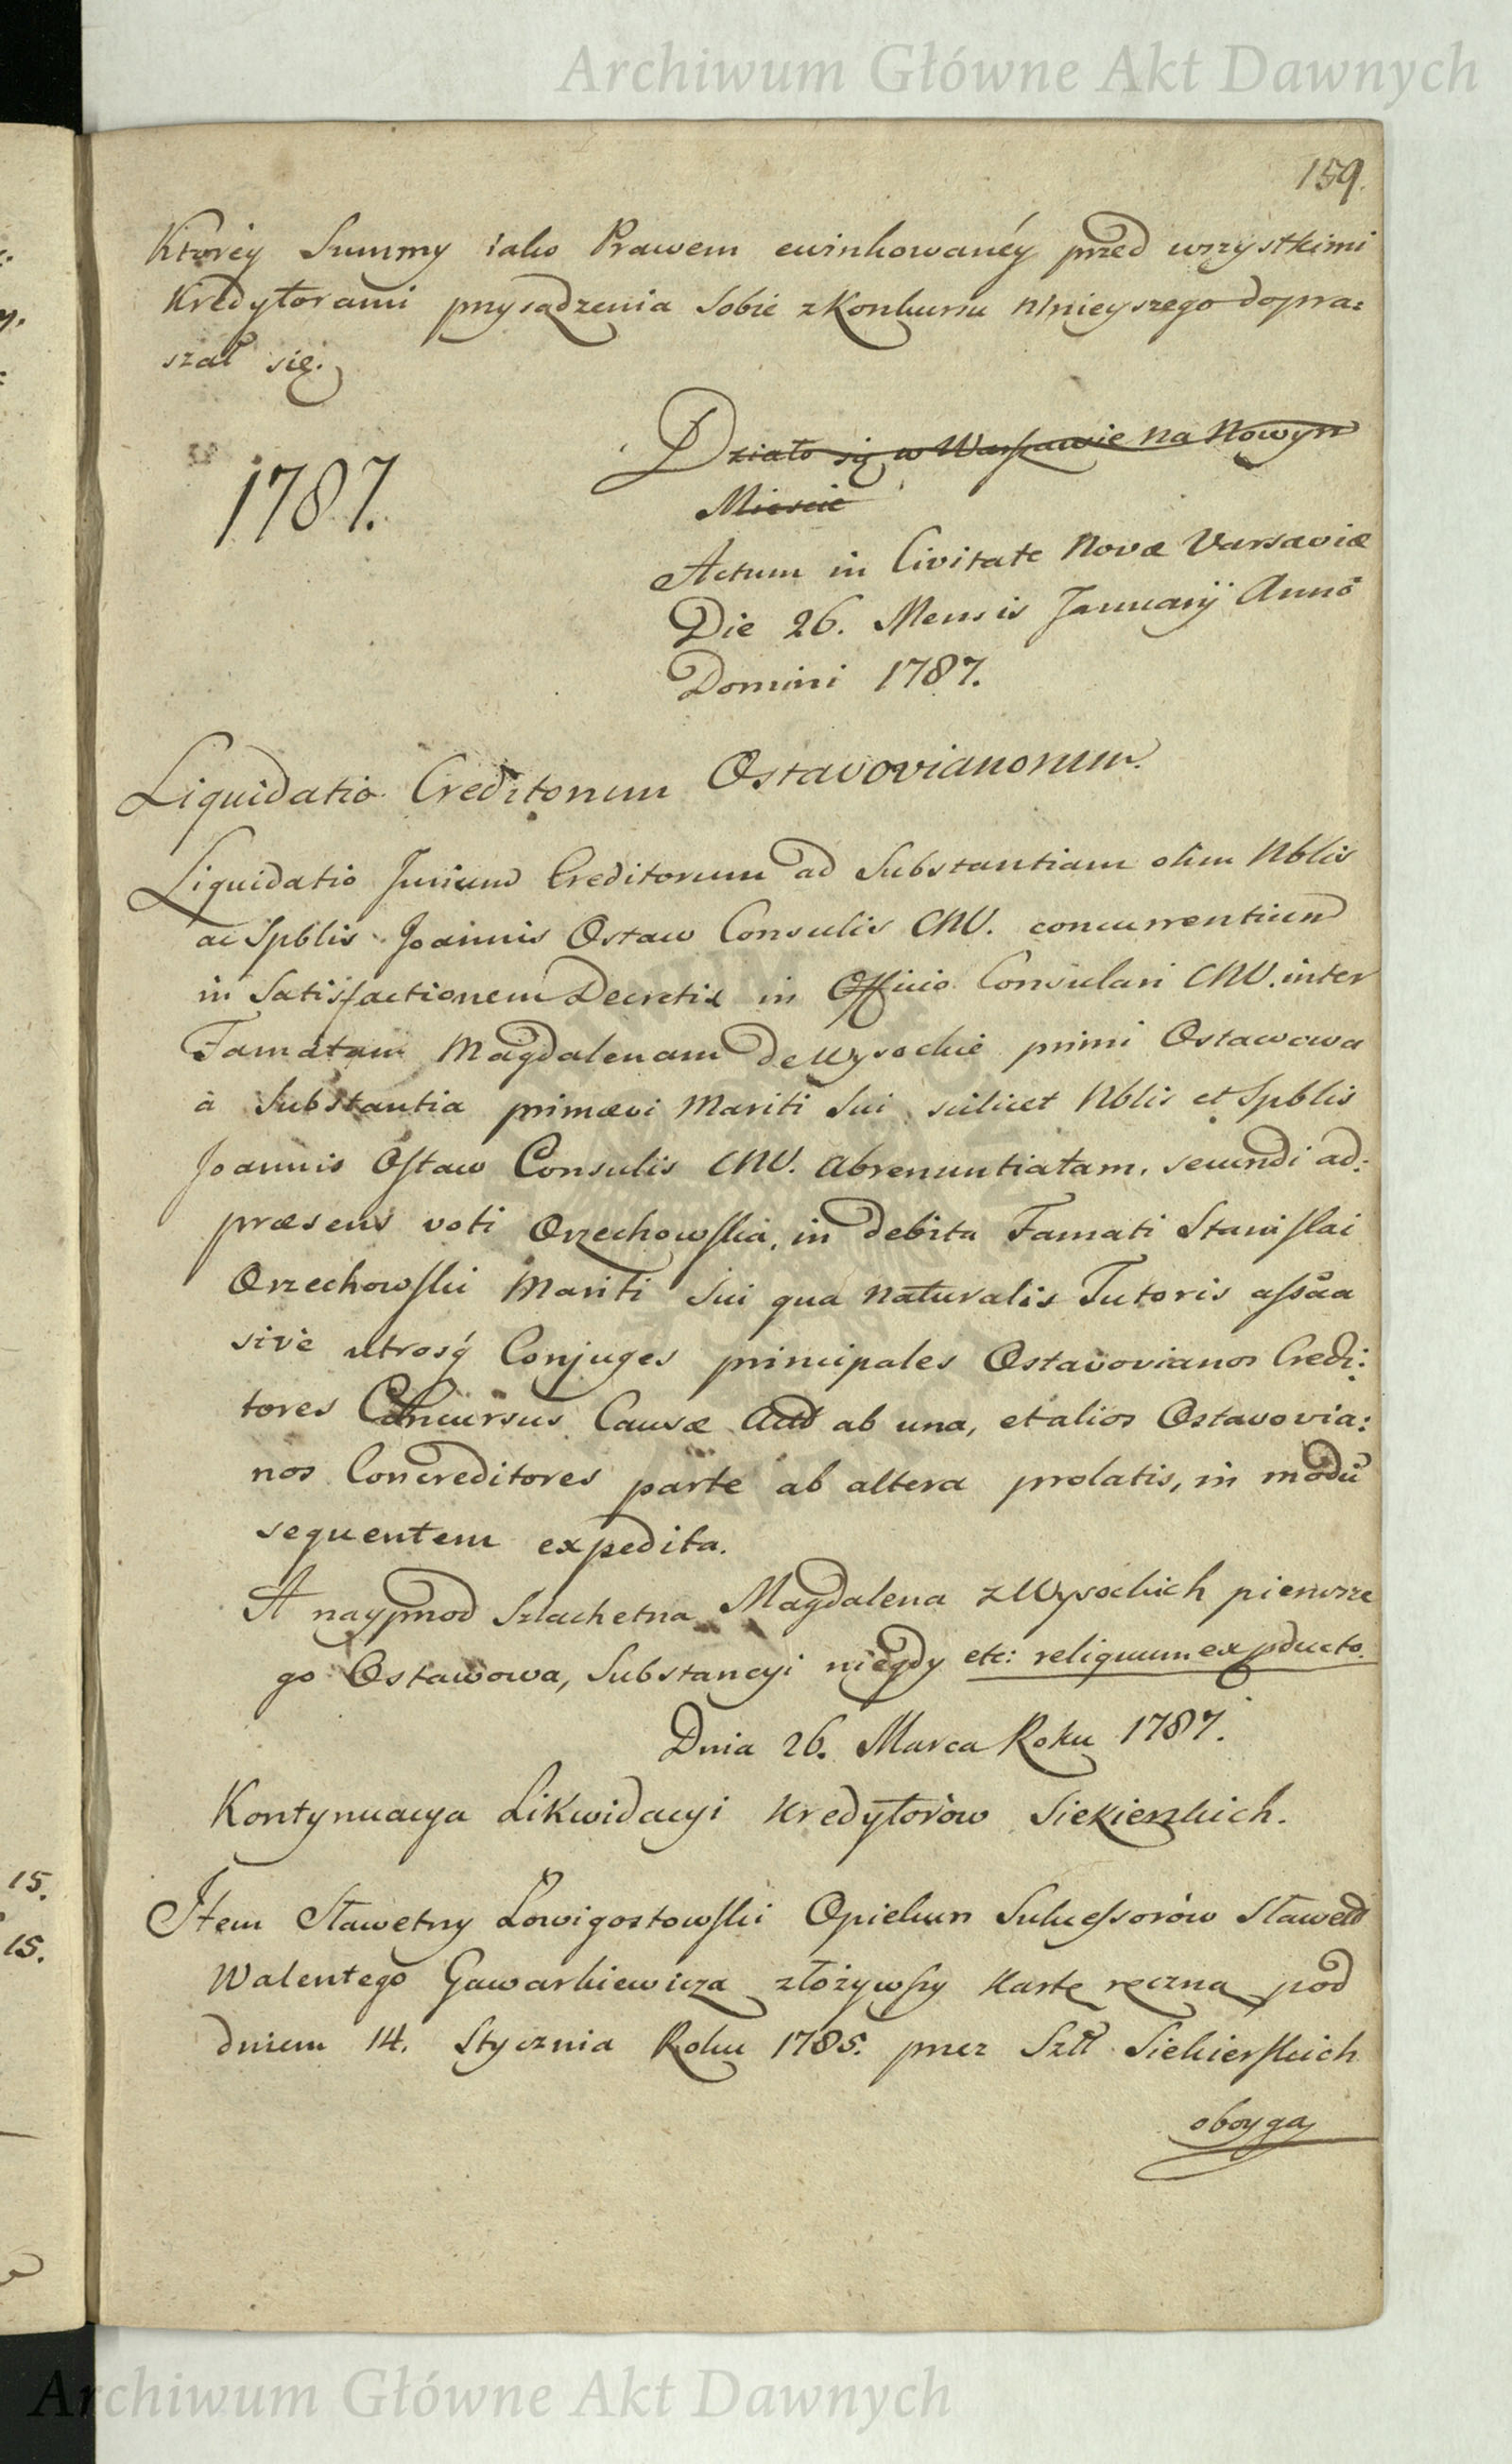 Archiwum Główne Akt Dawnych
159.
Ktoréy Summy iako Prawem ewinkowanéy przed wszystkimi
Kredytorami przysądzenia Sobie z Konkursu ninieyszego dopra:
szał się.
Działo się w Warszawie na Nowym
Mieście
1787.
Actum in Civitate Novæ Varsaviæ
Die 26. Mensis Januarÿ Anno
Domini 1787.
Liquidatio Creditorum Ostavovianorum.
Liquidatio Jurium Creditorum ad Substantiam olim Nblis
ac Spblis Joannis Ostaw Consulis CNV. concurrentium
in Satisfactionem Decretis in Officio Consulari CNV. inter
Famatam Magdalenam de Wysockie primi Ostawowa
à Substantia primævi Mariti Sui scilicet Nblis et Spblis
Joannis Ostaw Consulis CNV. abrenuntiatam, secundi ad:
præsens voti Orzechowska, in debita Famati Stanislai
Orzechowski Mariti Sui qua naturalis Tutoris assa
sive utrosq́ Conjuges principales Ostavovianos Credi:
tores Concursus Causæ ab una, et alios Ostavovia:
nos Concreditores parte ab altera prolatis, in modū
sequentem expedita.
A nayprzod Szlachetna Magdalena z Wysockich pierwsze
go Ostawowa, Substancyi niegdy etc: reliquum ex pducto.
Dnia 26. Marca Roku 1787.
Kontynuacya Likwidacyi Kredytorów Siekierskich.
Item Sławetny Lowigostowski Opiekun Sukcessorów Sławetd
Walentego Gawarkiewicza złożywszy Kartę ręczną pod
dniem 14. Stycznia Roku 1785. przez Szll Siekierskich
oboyga
15.
15.
Archiwum Główne Akt Dawnych